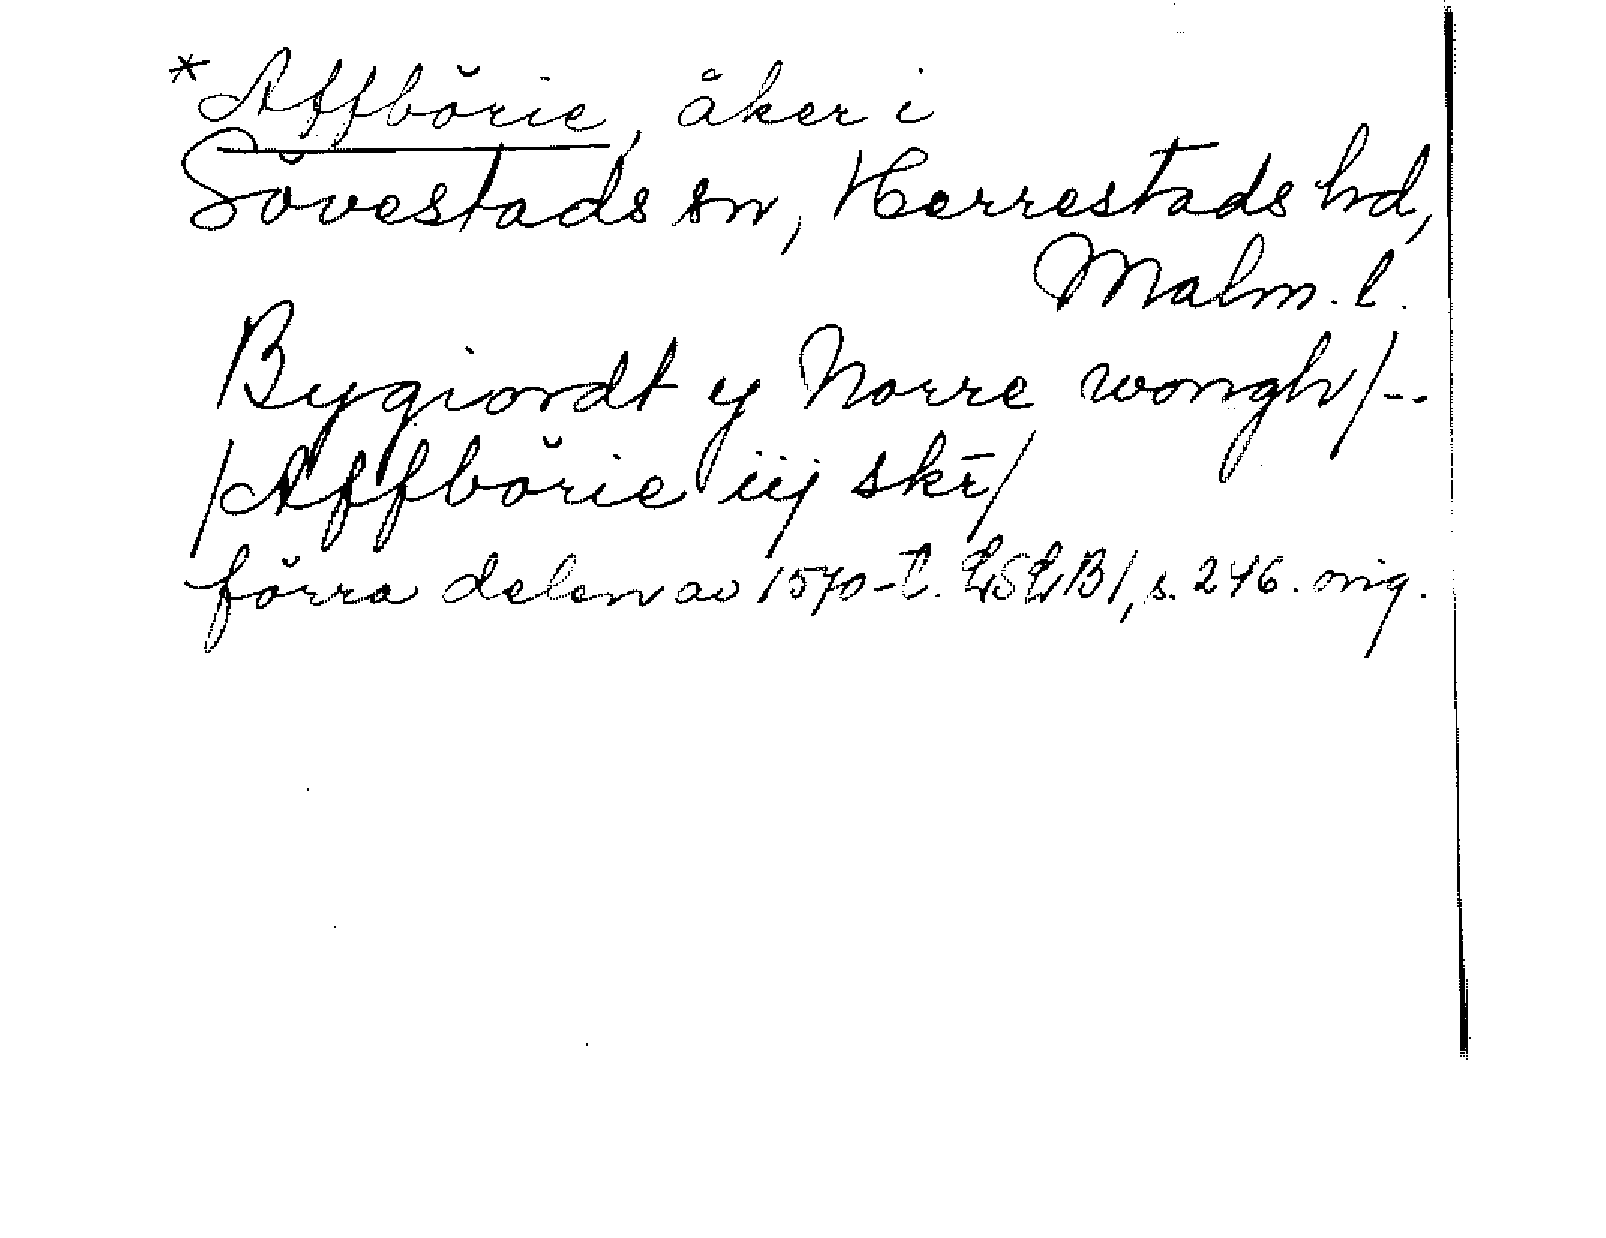 *Affbörie, åker i
Sövestads sn, Herrestads hd,
Malm. l.
Bygiordt y Norre wongh/--
/Affbörie iij skr̄/
förra delen av 1570-t. LSLB1, s. 246. orig.